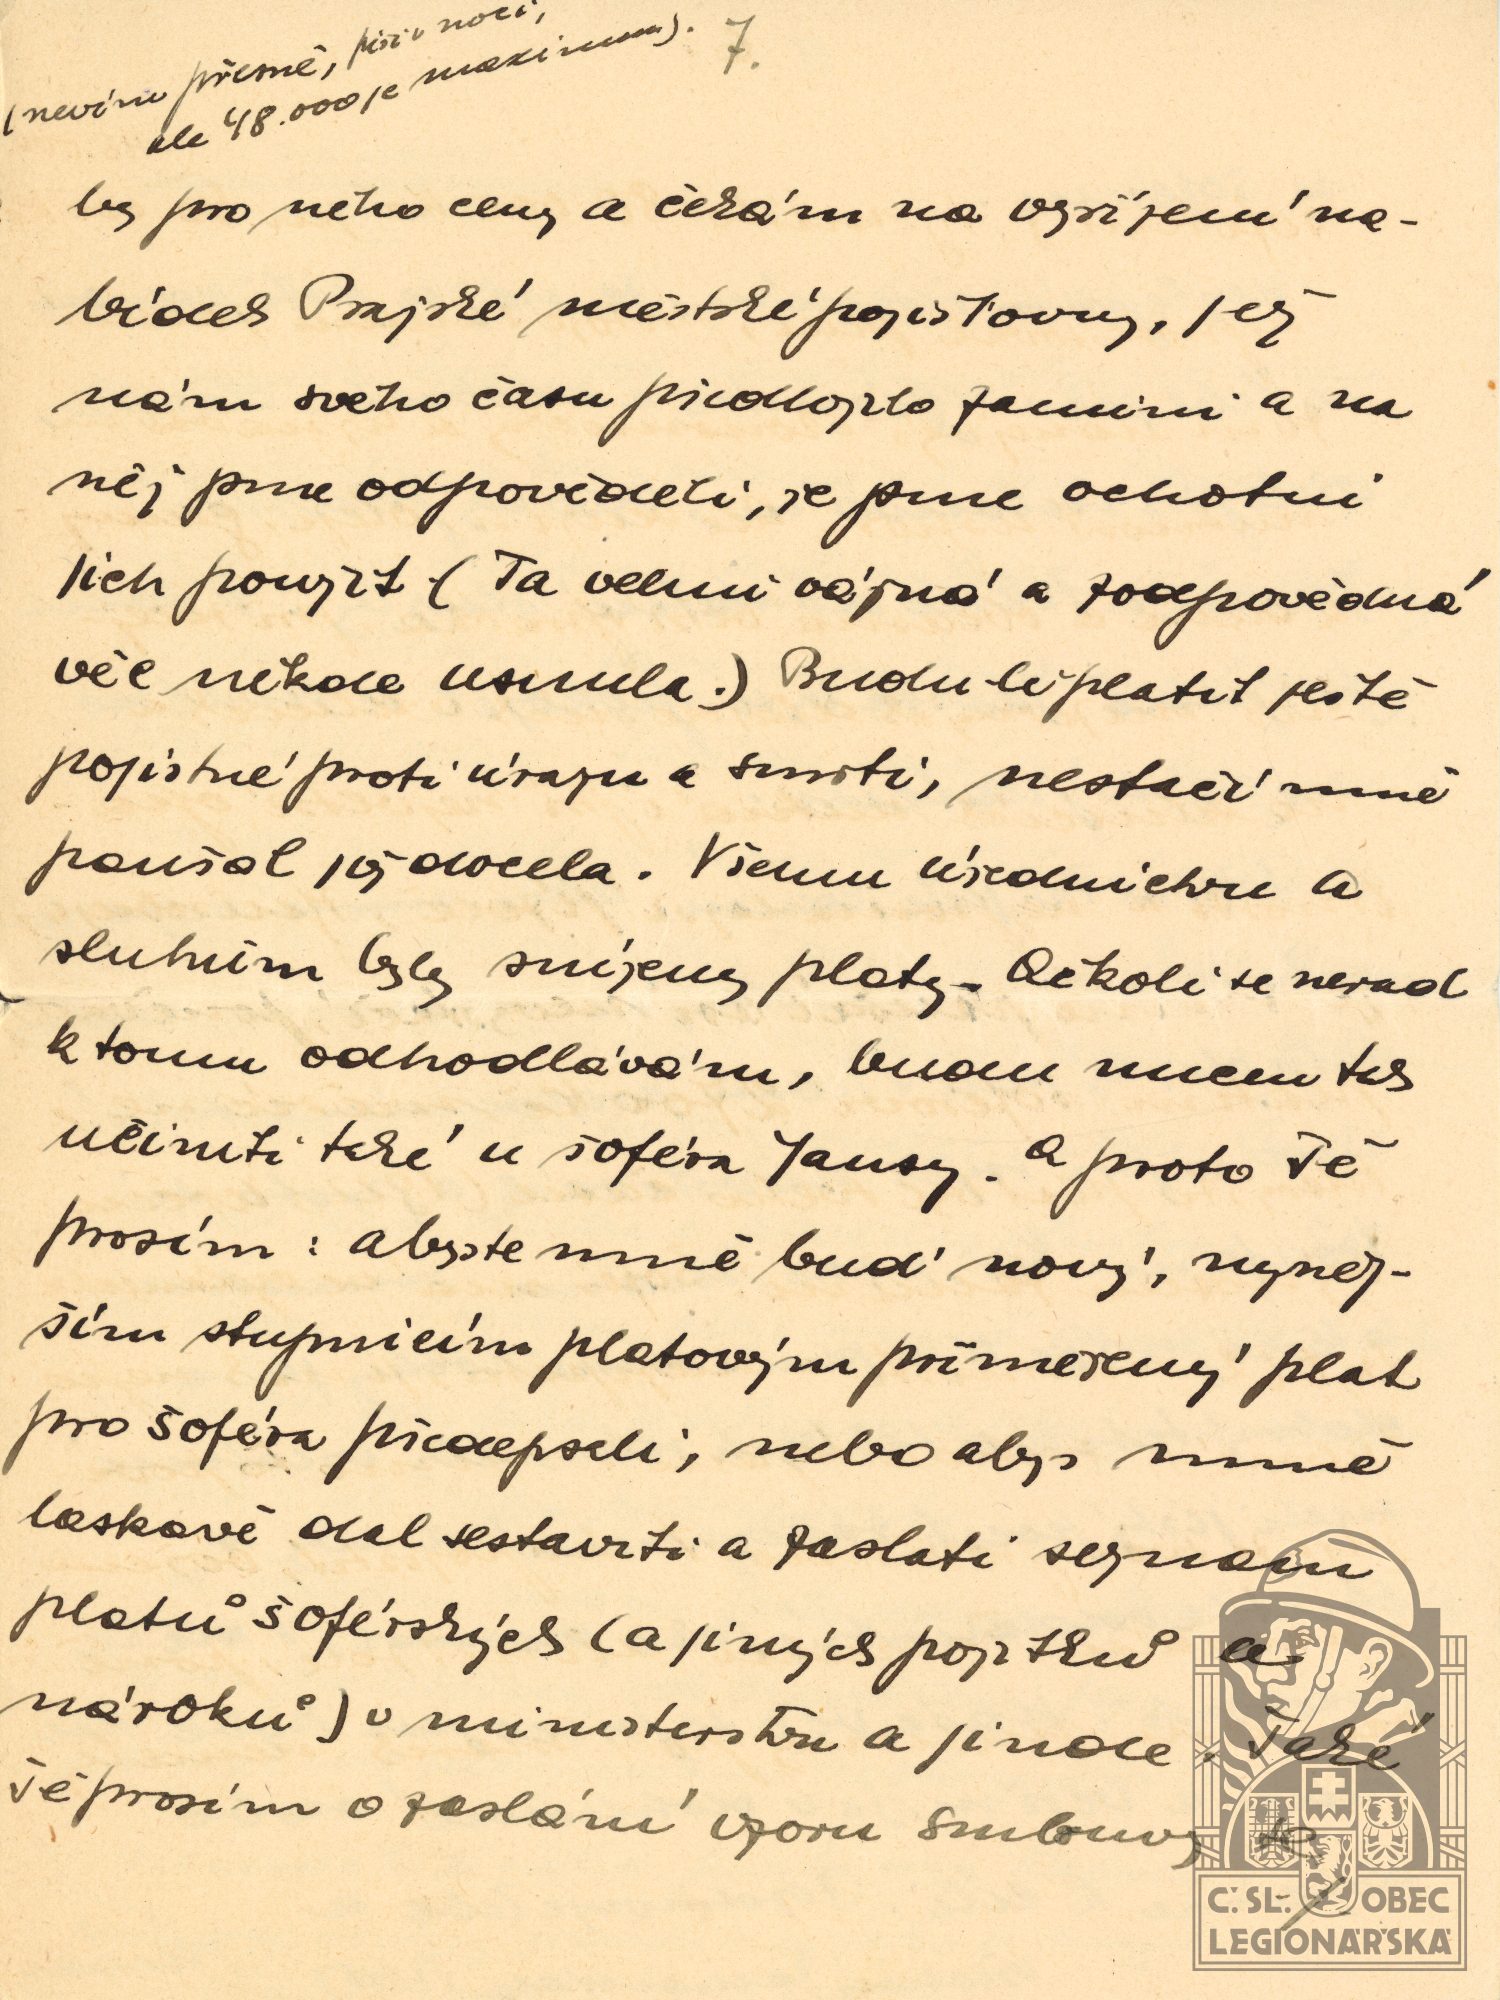 (nevím přesně, píši v noci,
ale 48.000 je maximum).
7.
by pro něho ceny a čekám na vyřízení na-
bídek Pražské městské pojišťovny, jež
nám svého času předložilo zamini a na
něj jsme odpověděli, že jsme ochotni
jich použít (Ta velmi vážná a zodpovědná
věc někde usnula.) Budu-li platit ještě
pojistné proti úrazu a smrti, nestačí mně
paušál již docela. Všemu úřednictvu a
sluhům byly sníženy platy. Ačkoli se nerad
k tomu odhodlávám, budu nucen tak
učiniti také u šoféra Jansy. A proto Tě
prosím: abyste mně buď nový, nyněj-
ším stupnicím platovým přiměřený plat
pro šoféra předepsali, nebo abys mně
laskavě dal sestaviti a zaslati seznam
platů šoférských (a jiných požitků a
nároků) v ministerstvu a jinde. Také
Tě prosím o zaslání vzoru smlouvy se
Č. SL. OBEC
LEGIONÁŘSKÁ